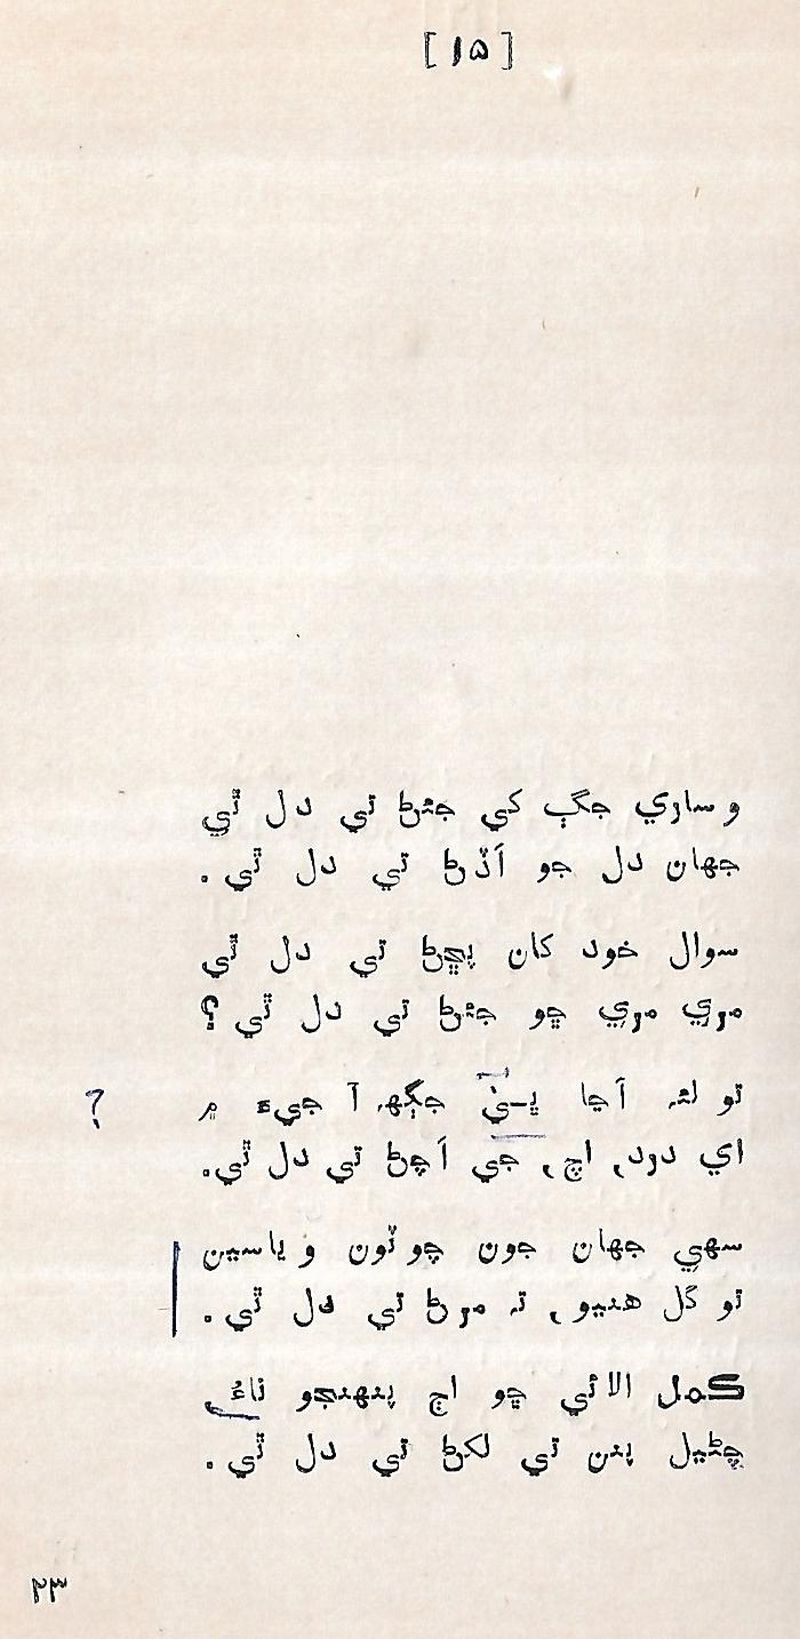 [۱۵]
وساري جڳ کي جيئڻ تي دل ٿي
جهان دل جو اَڏڻ تي دل ٿي.
سوال خود کان پڇڻ تي دل ٿي
مري مري ڇو جيئڻ تي دل ٿي؟
تو لئہ اَڃا ڀي جڳهہ آ جيءَ ۾
?
اي درد، اچ، جي اَچڻ تي دل ٿي.
سهي جهان جون چوٽون وياسين
تو گل هنيو، تہ مرڻ تي دل ٿي.
ڪمل الائي ڇو اڄ پنهنجو نانءُ
چڻيل پنن تي لکڻ تي دل ٿي.
۲۳